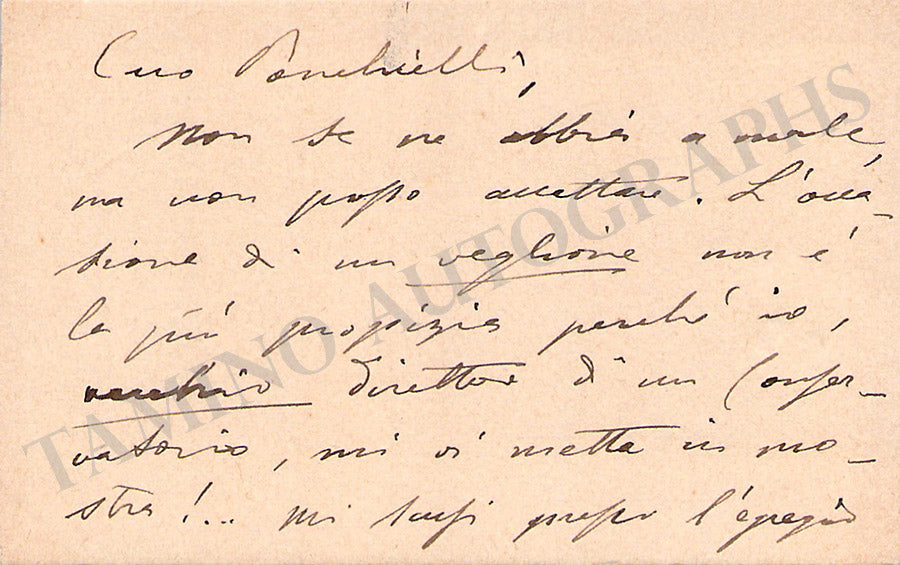 Caro Ponchielli,
Non se ne abbia a male,
ma non posso accettare. L'occa-
sione di un veglione non è
la più propizia perché io,
vecchio direttore di un Conser-
vatorio, mi vi metta in mo-
stra!... Mi scusi presso l'egregio
TAMINO AUTOGRAPHS